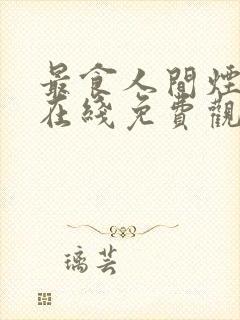 最食人間煙
在綫免費觀
璃芸